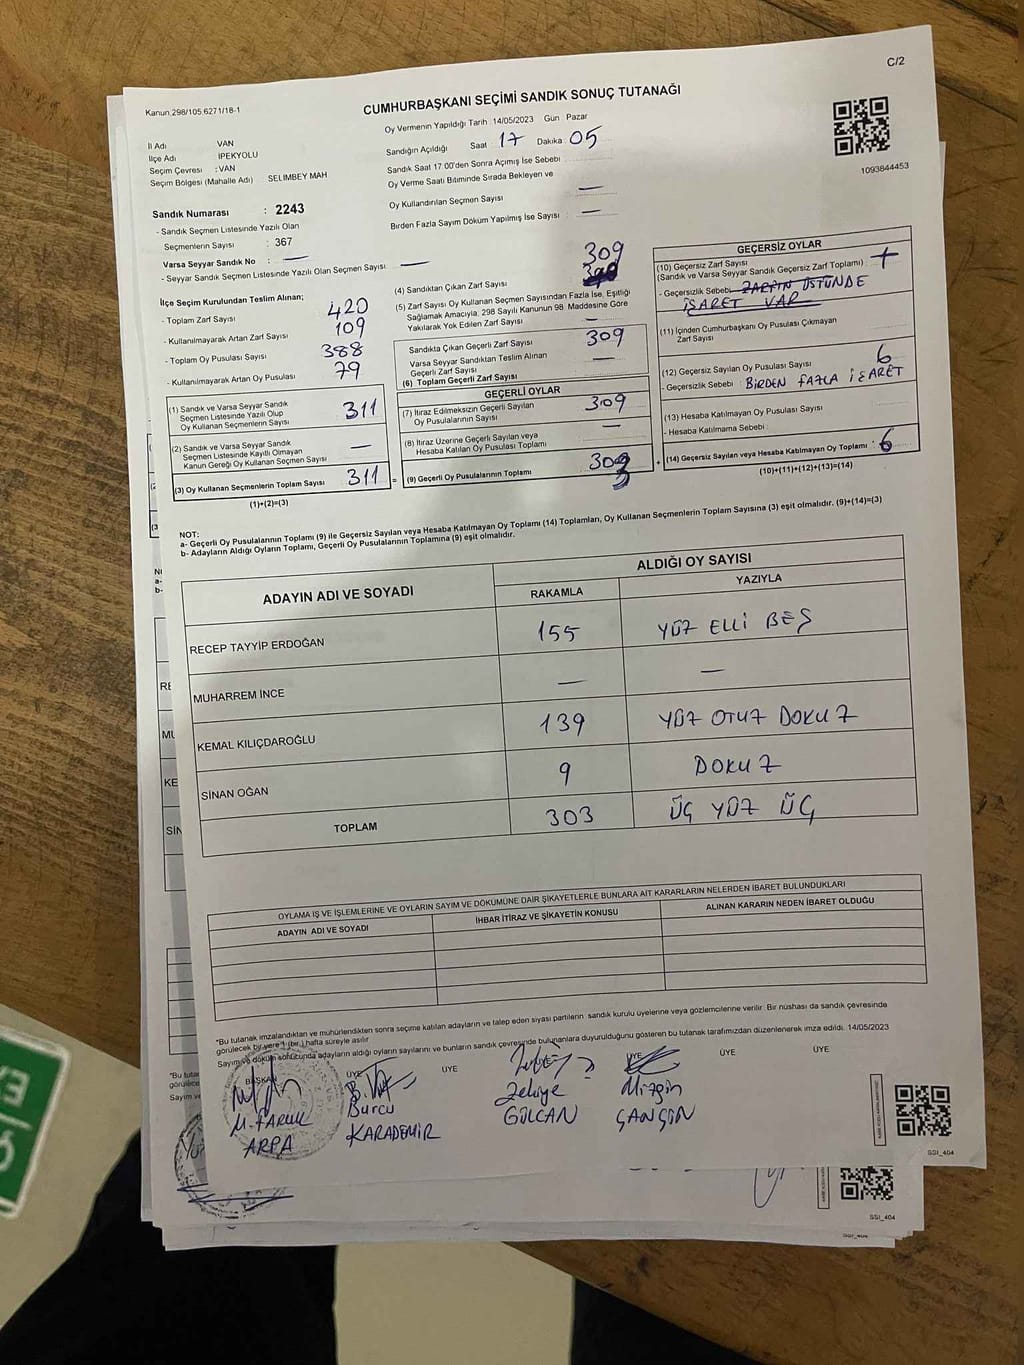 C/2
Kanun 298/105 6271/18-1
CUMHURBAŞKANI SEÇİMİ SANDIK SONUÇ TUTANAĞI
Oy Vermenin Yapıldığı Tarih 14/05/2023 Gün Pazar
İl Adı VAN
İlçe Adı İPEKYOLU
Seçim Çevresi : VAN
Seçim Bölgesi (Mahalle Adı) SELİMBEY MAH
Sandığın Açıldığı Saat 17 Dakika 05
Sandık Saat 17:00'den Sonra Açımış İse Sebebi
Oy Verme Saati Bitiminde Sırada Bekleyen ve
Oy Kullandırılan Seçmen Sayısı —
Birden Fazla Sayım Döküm Yapılmış İse Sayısı : —
1093844453
Sandık Numarası : 2243
- Sandık Seçmen Listesinde Yazılı Olan
Seçmenlerin Sayısı : 367
Varsa Seyyar Sandık No : —
- Seyyar Sandık Seçmen Listesinde Yazılı Olan Seçmen Sayısı: —
İlçe Seçim Kurulundan Teslim Alınan;
- Toplam Zarf Sayısı 420
- Kullanılmayarak Artan Zarf Sayısı 109
- Toplam Oy Pusulası Sayısı 388
- Kullanılmayarak Artan Oy Pusulası 79
(1) Sandık ve Varsa Seyyar Sandık
Seçmen Listesinde Yazılı Olup
Oy Kullanan Seçmenlerin Sayısı 311
(2) Sandık ve Varsa Seyyar Sandık
Seçmen Listesinde Kayıtlı Olmayan
Kanun Gereği Oy Kullanan Seçmen Sayısı —
(3) Oy Kullanan Seçmenlerin Toplam Sayısı 311 =
(1)+(2)=(3)
309
(4) Sandıktan Çıkan Zarf Sayısı
(5) Zarf Sayısı Oy Kullanan Seçmen Sayısından Fazla İse, Eşitliği
Sağlamak Amacıyla, 298 Sayılı Kanunun 98. Maddesine Göre
Yakılarak Yok Edilen Zarf Sayısı —
Sandıkta Çıkan Geçerli Zarf Sayısı 309
Varsa Seyyar Sandıktan Teslim Alınan
Geçerli Zarf Sayısı —
(6) Toplam Geçerli Zarf Sayısı
GEÇERLİ OYLAR
(7) İtiraz Edilmeksizin Geçerli Sayılan
Oy Pusulalarının Sayısı 309
(8) İtiraz Üzerine Geçerli Sayılan veya
Hesaba Katılan Oy Pusulası Toplamı —
(9) Geçerli Oy Pusulalarının Toplamı 303 +
3
GEÇERSİZ OYLAR
(10) Geçersiz Zarf Sayısı
(Sandık ve Varsa Seyyar Sandık Geçersiz Zarf Toplamı)
- Geçersizlik Sebebi ZARFIN ÜSTÜNDE
İŞARET VAR
(11) İçinden Cumhurbaşkanı Oy Pusulası Çıkmayan
Zarf Sayısı
(12) Geçersiz Sayılan Oy Pusulası Sayısı 6
- Geçersizlik Sebebi : BİRDEN FAZLA İŞARET
(13) Hesaba Katılmayan Oy Pusulası Sayısı
- Hesaba Katılmama Sebebi :
(14) Geçersiz Sayılan veya Hesaba Katılmayan Oy Toplamı : 6
(10)+(11)+(12)+(13)=(14)
NOT:
a- Geçerli Oy Pusulalarının Toplamı (9) ile Geçersiz Sayılan veya Hesaba Katılmayan Oy Toplamı (14) Toplamları, Oy Kullanan Seçmenlerin Toplam Sayısına (3) eşit olmalıdır. (9)+(14)=(3)
b- Adayların Aldığı Oyların Toplamı, Geçerli Oy Pusulalarının Toplamına (9) eşit olmalıdır.
ADAYIN ADI VE SOYADI
ALDIĞI OY SAYISI
RAKAMLA YAZIYLA
RECEP TAYYİP ERDOĞAN 155 YÜZ ELLİ BEŞ
MUHARREM İNCE — —
KEMAL KILIÇDAROĞLU 139 YÜZ OTUZ DOKUZ
SİNAN OĞAN 9 DOKUZ
TOPLAM 303 ÜÇ YÜZ ÜÇ
OYLAMA İŞ VE İŞLEMLERİNE VE OYLARIN SAYIM VE DÖKÜMÜNE DAİR ŞİKAYETLERLE BUNLARA AİT KARARLARIN NELERDEN İBARET BULUNDUKLARI
ADAYIN ADI VE SOYADI İHBAR İTİRAZ VE ŞİKAYETİN KONUSU ALINAN KARARIN NEDEN İBARET OLDUĞU
"Bu tutanak imzalandıktan ve mühürlendikten sonra seçime katılan adayların ve talep eden siyasi partilerin sandık kurulu üyelerine veya gözlemcilerine verilir. Bir nüshası da sandık çevresinde
görülecek bir yere 1 (bir) hafta süreyle asılır
Sayım ve döküm sonucunda adayların aldığı oyların sayılarını ve bunların sandık çevresinde bulunanlara duyurulduğunu gösteren bu tutanak tarafımızdan düzenlenerek imza edildi. 14/05/2023
BAŞKAN ÜYE ÜYE ÜYE ÜYE ÜYE ÜYE
M. FARUK ARPA
Burcu KARADEMİR
Zekiye GÜLCAN
Mizgin
SSI_404
SSI_404